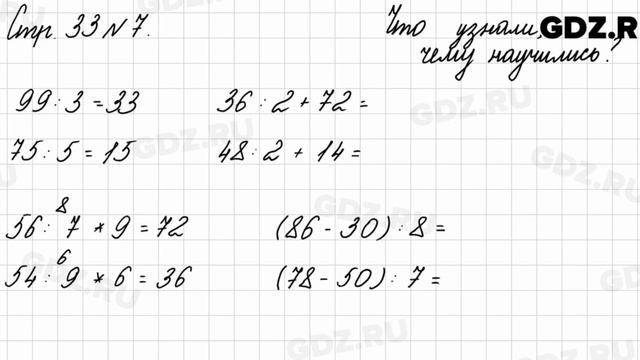 Стр. 33 № 7.
Что узнали,
чему научились?
GDZ.R
99 : 3 = 33
36 : 2 + 72 =
75 : 5 = 15
48 : 2 + 14 =
8
56 : 7 * 9 = 72
(86 - 30) : 8 =
6
54 : 9 * 6 = 36
(78 - 50) : 7 =
GDZ.RU
GDZ.RU
GDZ.RU
GDZ.RU
GDZ.RU